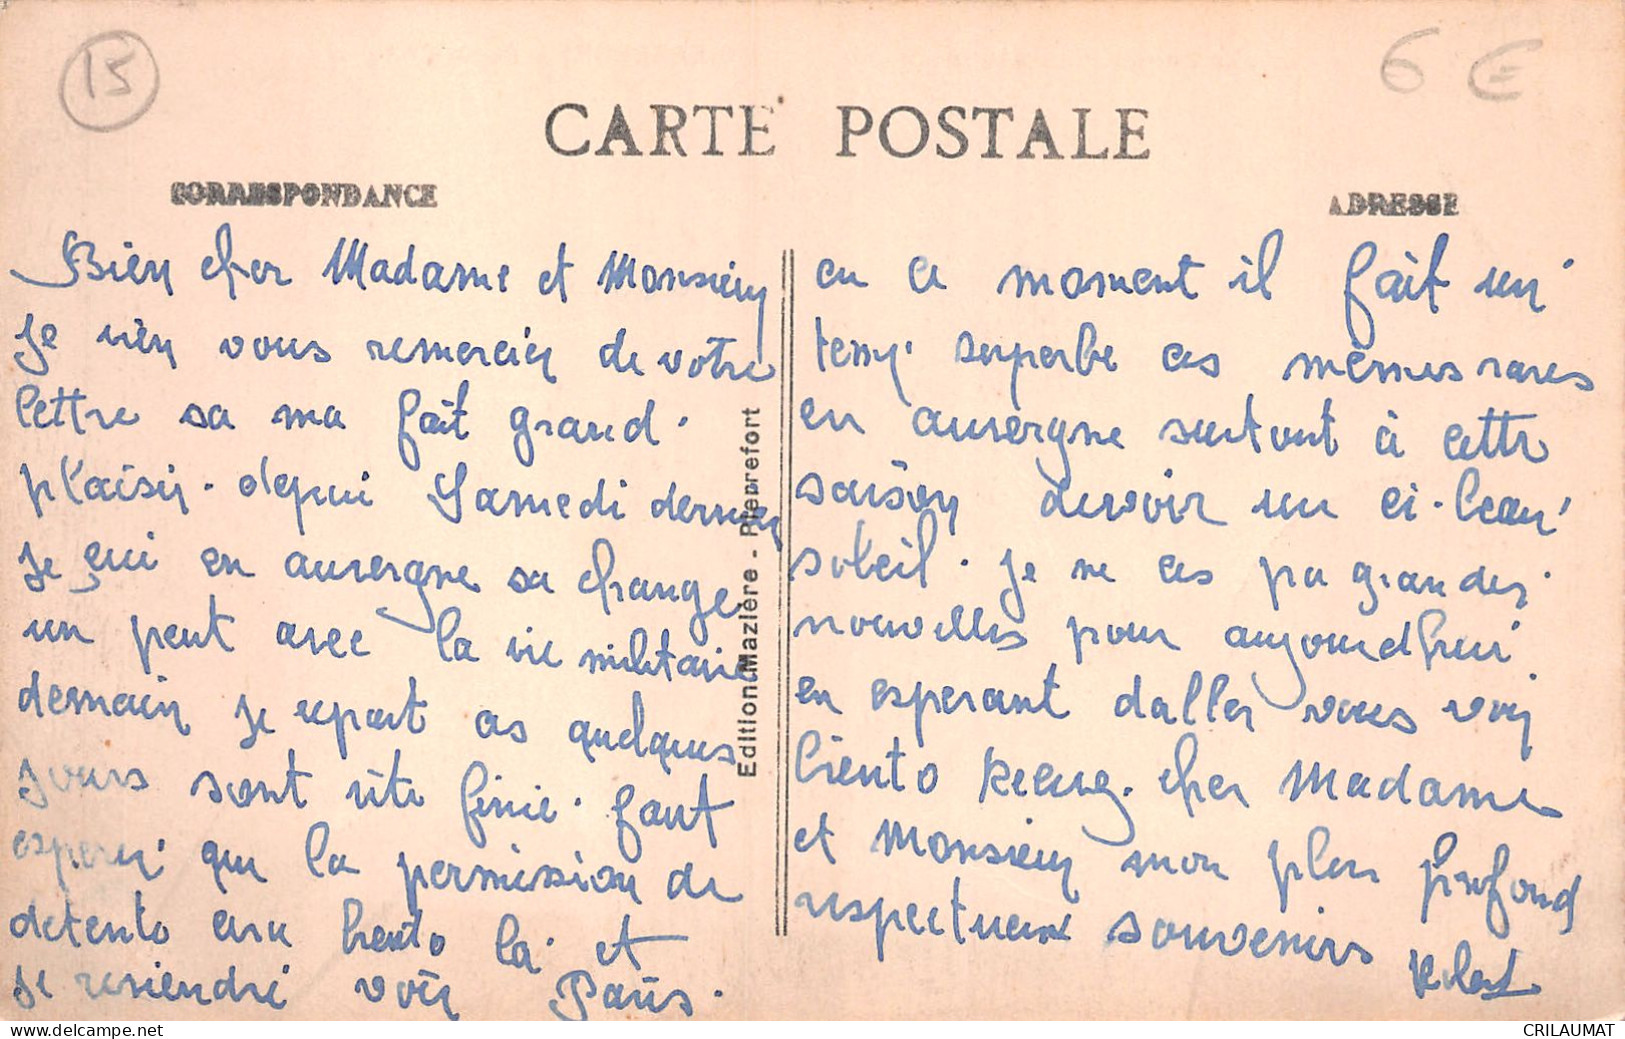 15
6 €
CARTE POSTALE
CORRESPONDANCE
ADRESSE
Bien cher Madame et Monsieur
je vien vous remercier de votre
lettre sa ma fait grand
plaisir. depui Samedi dernier
je sui en auvergne sa change
un peut avec la vie militaire
demain je repart ces quelques
jours sont vite finie. faut
esperer que la permission de
detente sera bento là et
je reviendré voir Paris.
Edition Mazière - Pierrefort
en ce moment il fait un
temp superbe ces mêmes rares
en auvergne surtout à cette
saison devoir un ci-beau
soleil. je ne ces pa grandes
nouvelles pour aujourdhui
en esperant daller vous voir
biento cher Madame
et Monsieur mon plus profond
respectueux souvenirs
CRILAUMAT